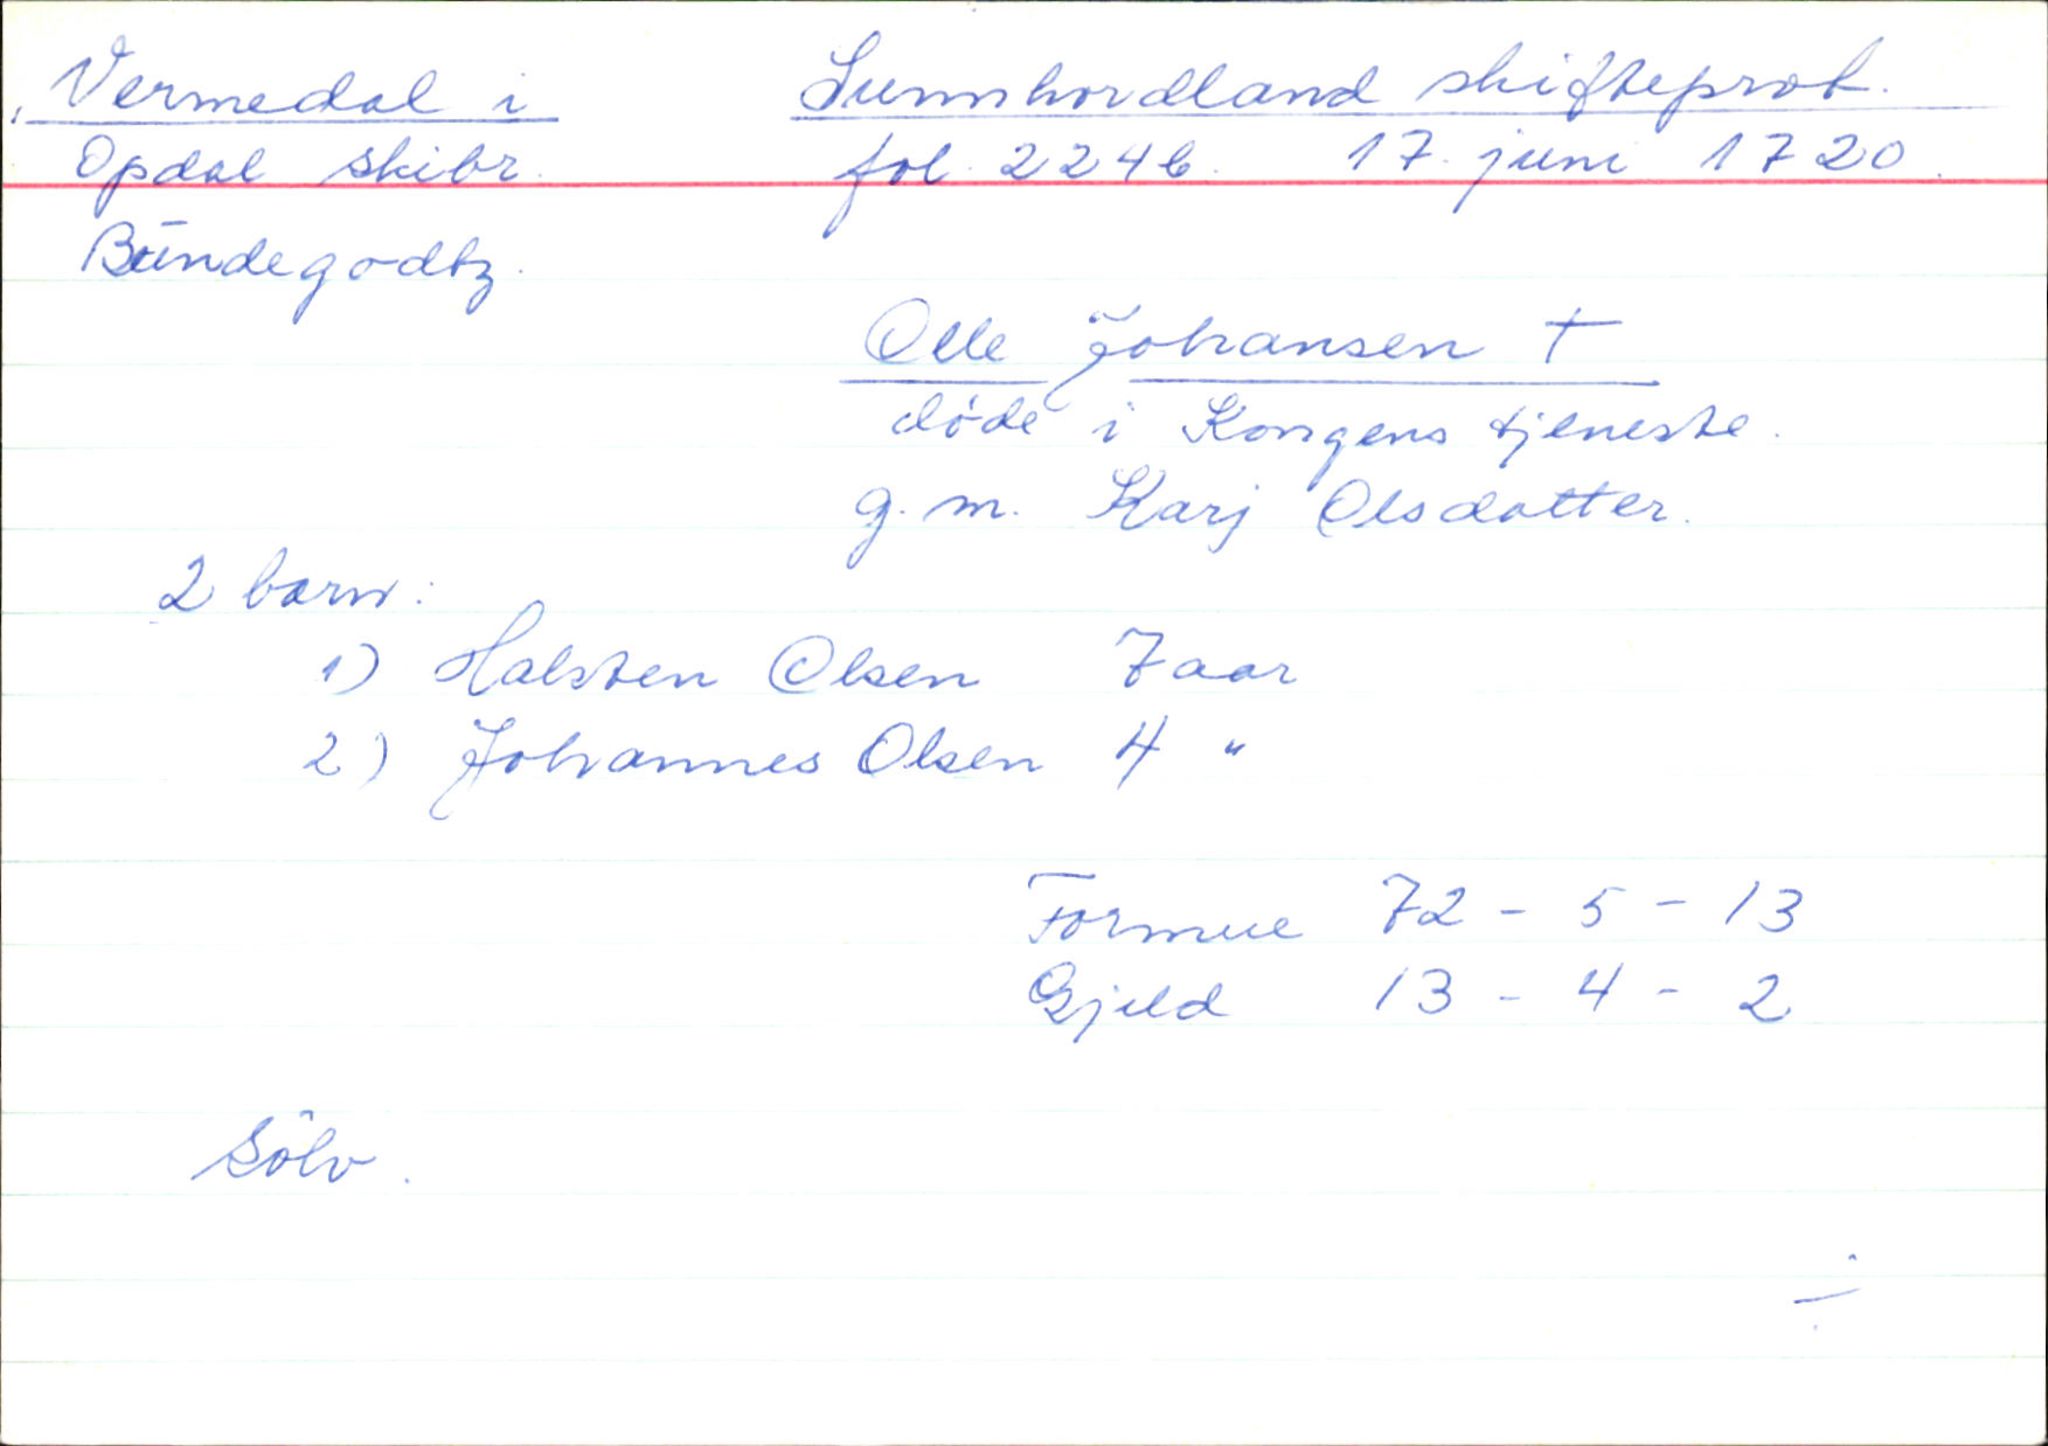 Vermedal i
Opdal skibr.
Bündegodtz.
Sunnhordland skifteprot.
fol. 224b. 17. juni 1720.
Olle Johansen †
døde i Kongens tjeneste.
g. m. Karj Olsdatter.
2 barn:
1) Halsten Olsen 7 aar
2) Johannes Olsen 4 "
Formue 72 - 5 - 13
Gjeld 13 - 4 - 2
Sølv.
÷